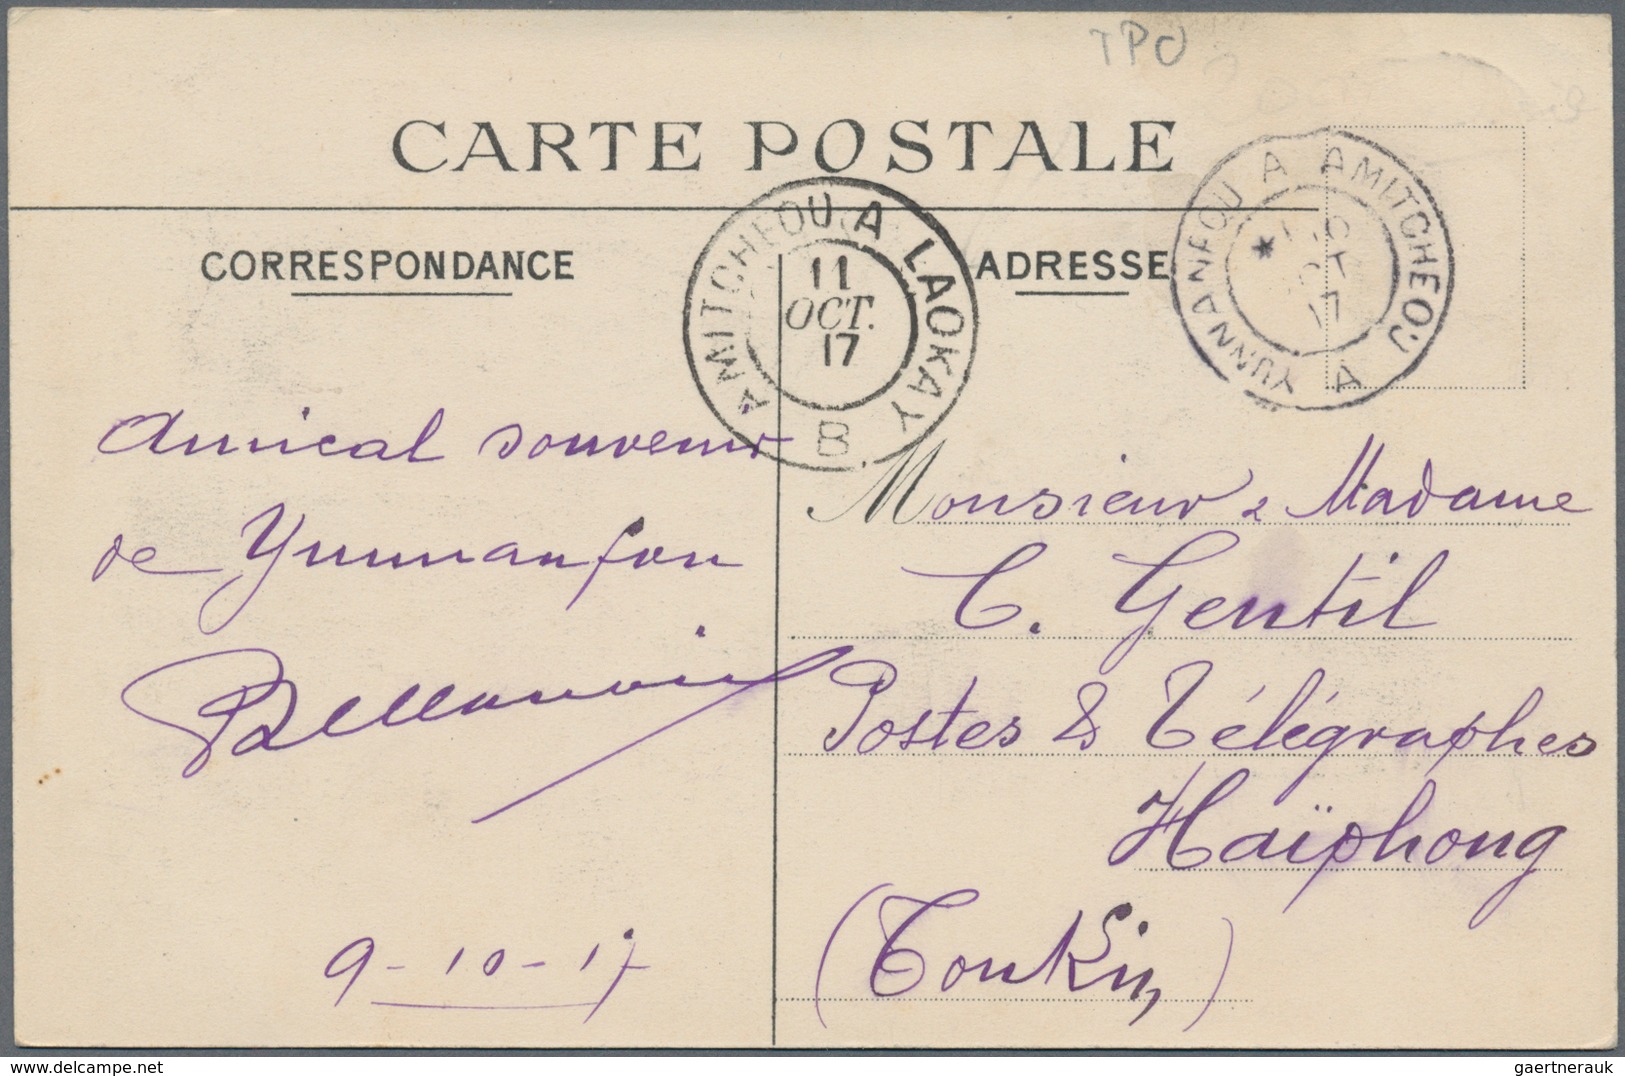 TPO
CARTE POSTALE
CORRESPONDANCE
ADRESSE
AMITCHEOU A LAOKAY
11
OCT.
17
B
YUNNANFOU A AMITCHEOU
OCT
17
A
Amical souvenir
de Yunnanfou
9-10-17
Monsieur & Madame
C. Gentil
Postes & Télégraphes
Haïphong
(Tonkin)
delcampe.net
gaertnerauk